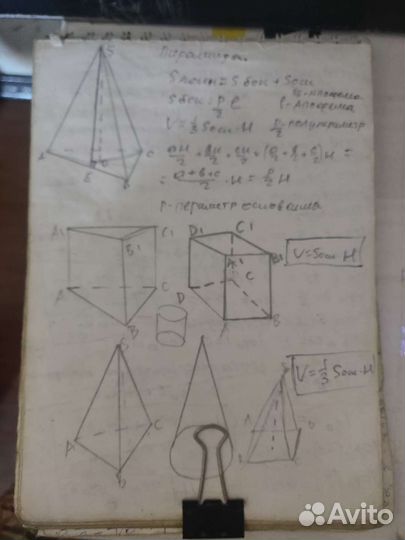 Пирамида
S
Sполн = Sбок + Sосн
Sбок = P/2 ℓ
ℓ - апофема
V = 1/3 Sосн · H
P/2 - полупериметр
aH/2 + bH/2 + cH/2 = (a/2 + b/2 + c/2) H =
= a+b+c/2 · H = P/2 H
P - периметр основания
A C
E B
A1 C1 D1 C1
B1 A1 B1
V = Sосн H
A C D C
B A B
V = 1/3 Sосн · H
A C
B
Avito